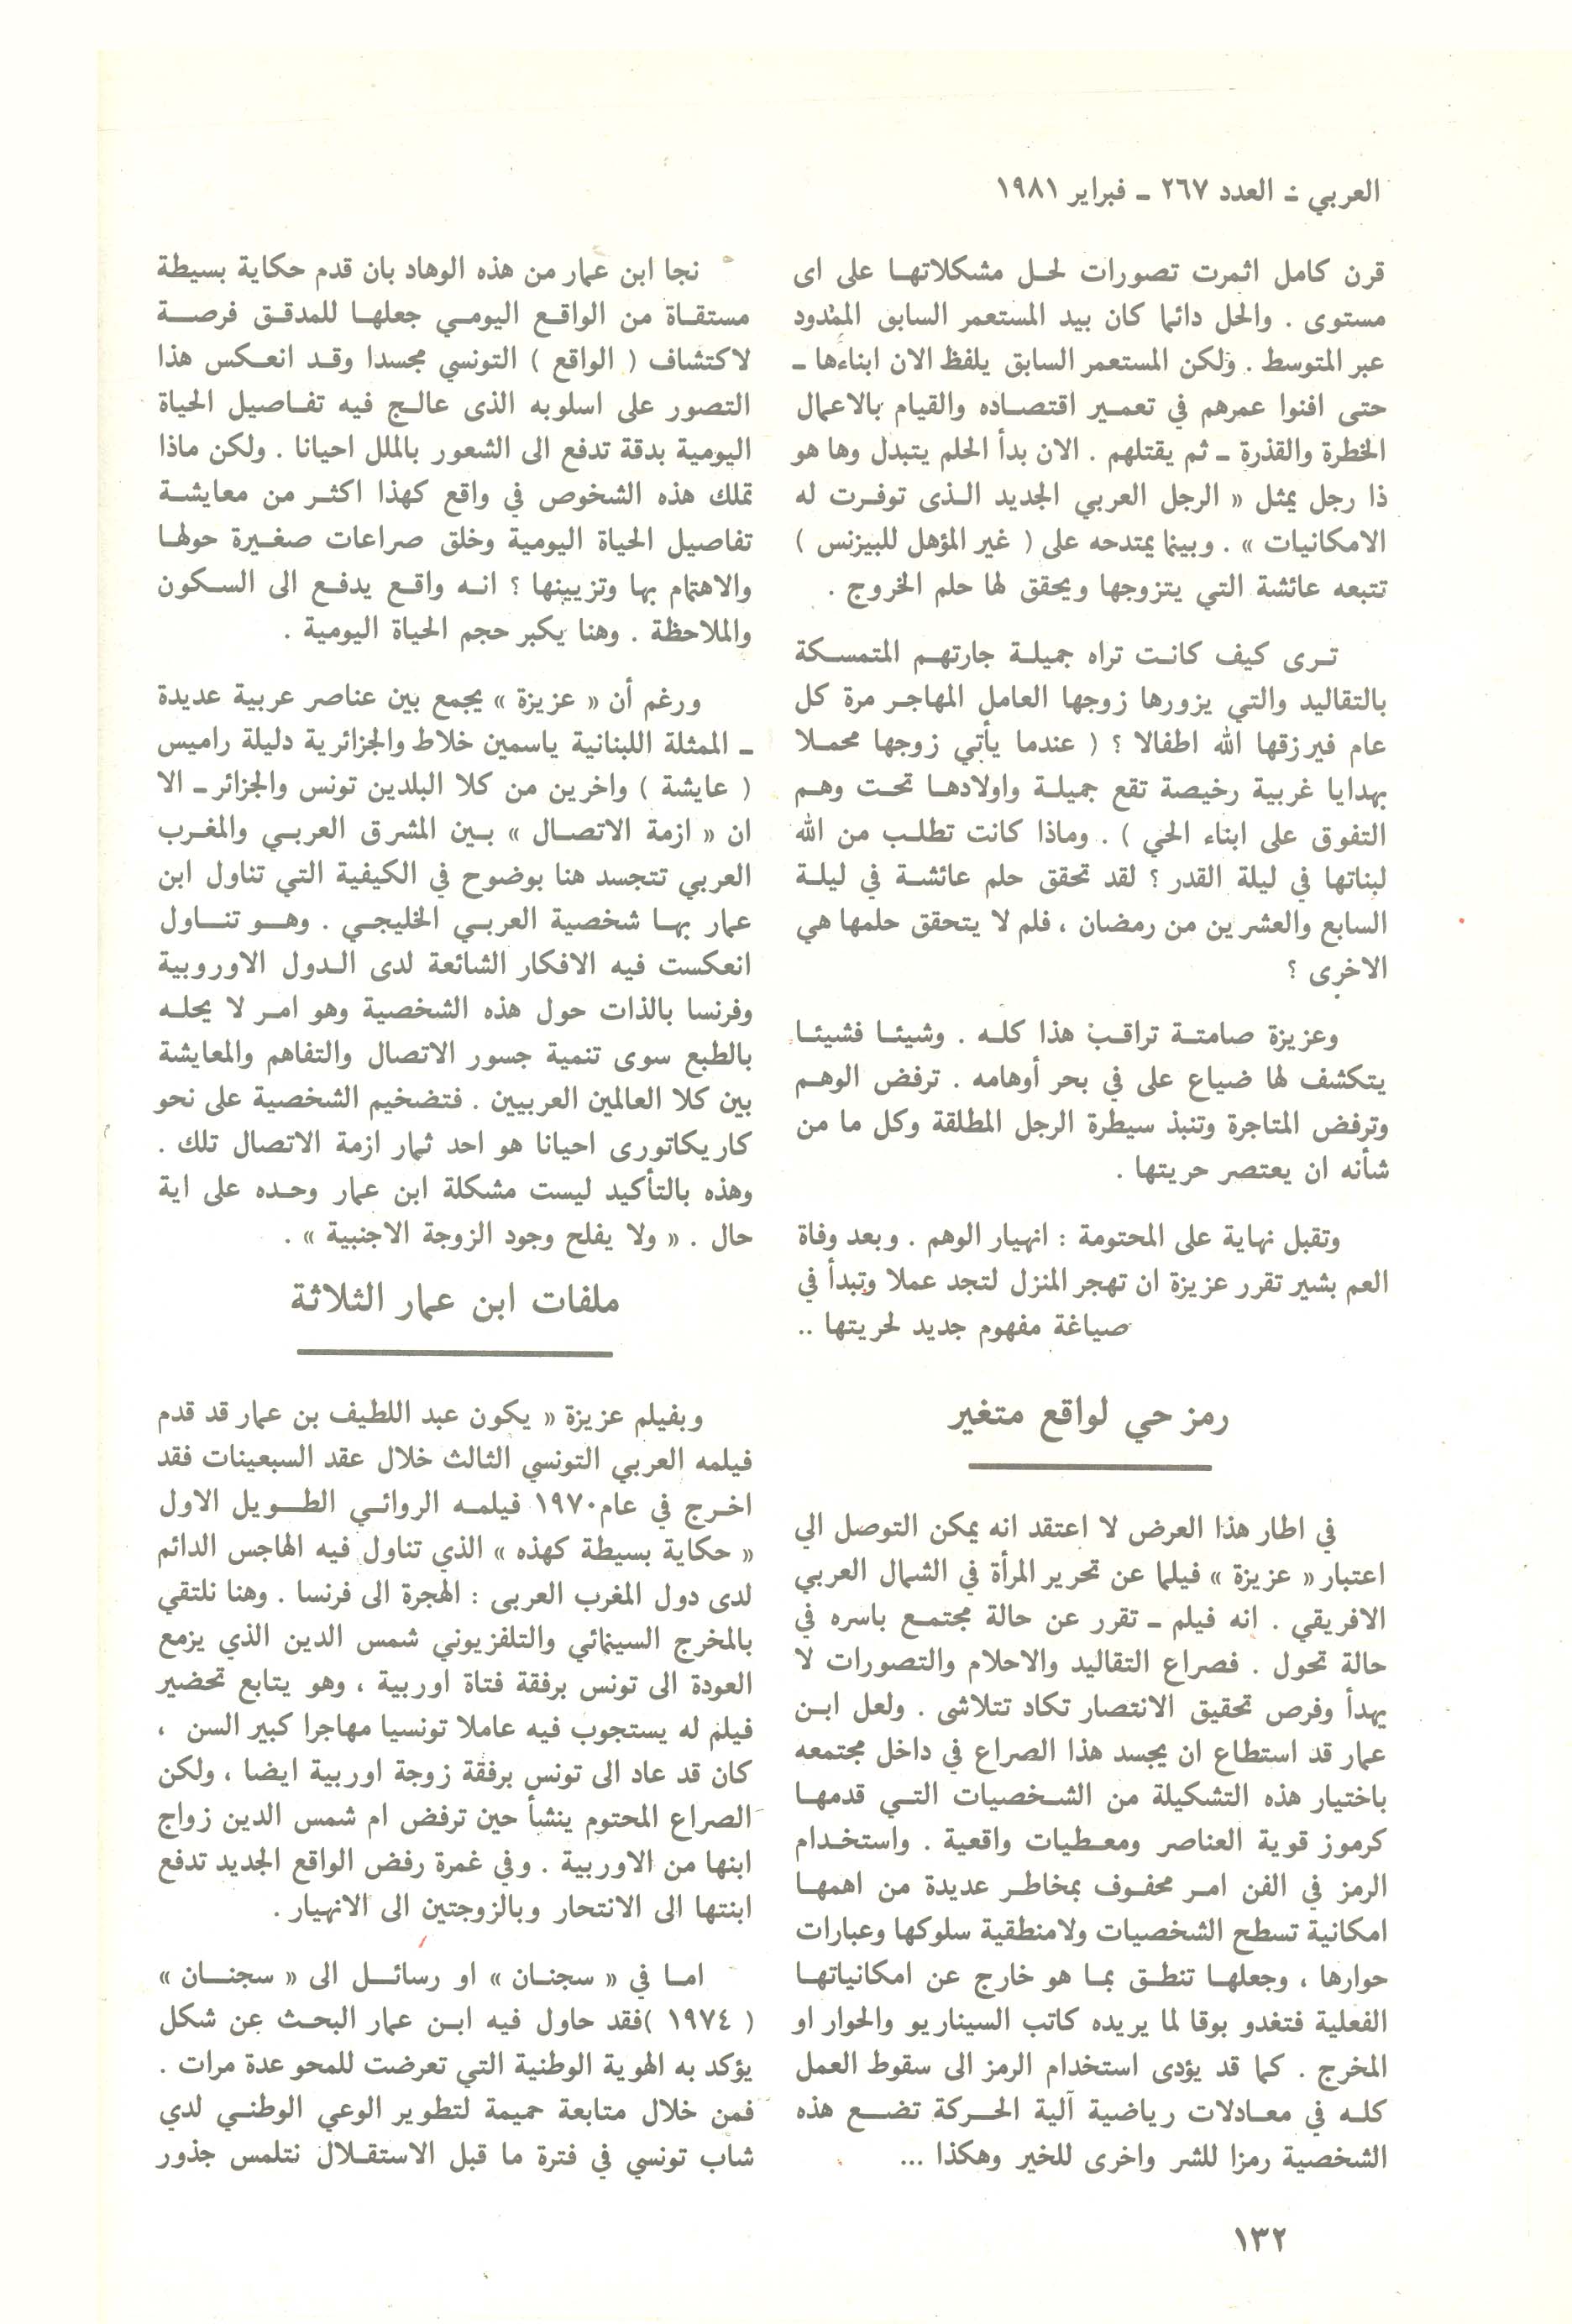 العربي - العدد ٢٦٧ - فبراير ١٩٨١
قرن كامل اثمرت تصورات لحل مشكلاتها على اى
مستوى . والحل دائما كان بيد المستعمر السابق الممدود
عبر المتوسط . ولكن المستعمر السابق يلفظ الان ابناءها -
حتى افنوا عمرهم في تعمير اقتصاده والقيام بالاعمال
الخطرة والقذرة - ثم يقتلهم . الان بدأ الحلم يتبدل وها هو
ذا رجل يمثل « الرجل العربي الجديد الذى توفرت له
الامكانيات » . وبينما يمتدحه على ( غير المؤهل للبيزنس )
تتبعه عائشة التي يتزوجها ويحقق لها حلم الخروج .
ترى كيف كانت تراه جميلة جارتهم المتمسكة
بالتقاليد والتي يزورها زوجها العامل المهاجر مرة كل
عام فيرزقها الله اطفالا ؟ ( عندما يأتي زوجها محملا
بهدايا غربية رخيصة تقع جميلة واولادها تحت وهم
التفوق على ابناء الحي ) . وماذا كانت تطلب من الله
لبناتها في ليلة القدر ؟ لقد تحقق حلم عائشة في ليلة
السابع والعشرين من رمضان ، فلم لا يتحقق حلمها هي
الاخرى ؟
وعزيزة صامتة تراقب هذا كله . وشيئا فشيئا
يتكشف لها ضياع على في بحر أوهامه . ترفض الوهم
وترفض المتاجرة وتنبذ سيطرة الرجل المطلقة وكل ما من
شأنه ان يعتصر حريتها .
وتقبل نهاية على المحتومة : انهيار الوهم . وبعد وفاة
العم بشير تقرر عزيزة ان تهجر المنزل لتجد عملا وتبدأ في
صياغة مفهوم جديد لحريتها ..
رمز حي لواقع متغير
في اطار هذا العرض لا اعتقد انه يمكن التوصل الي
اعتبار « عزيزة » فيلما عن تحرير المرأة في الشمال العربي
الافريقي . انه فيلم - تقرر عن حالة مجتمع باسره في
حالة تحول . فصراع التقاليد والاحلام والتصورات لا
يهدأ وفرص تحقيق الانتصار تكاد تتلاشى . ولعل ابن
عمار قد استطاع ان يجسد هذا الصراع في داخل مجتمعه
باختيار هذه التشكيلة من الشخصيات التي قدمها
كرموز قوية العناصر ومعطيات واقعية . واستخدام
الرمز في الفن امر محفوف بمخاطر عديدة من اهمها
امكانية تسطح الشخصيات ولامنطقية سلوكها وعبارات
حوارها ، وجعلها تنطق بما هو خارج عن امكانياتها
الفعلية فتغدو بوقا لما يريده كاتب السيناريو والحوار او
المخرج . كما قد يؤدى استخدام الرمز الى سقوط العمل
كله في معادلات رياضية آلية الحركة تضع هذه
الشخصية رمزا للشر واخرى للخير وهكذا ...
نجا ابن عمار من هذه الوهاد بان قدم حكاية بسيطة
مستقاة من الواقع اليومي جعلها للمدقق فرصة
لاكتشاف ( الواقع ) التونسي مجسدا وقد انعكس هذا
التصور على اسلوبه الذى عالج فيه تفاصيل الحياة
اليومية بدقة تدفع الى الشعور بالملل احيانا . ولكن ماذا
تملك هذه الشخوص في واقع كهذا اكثر من معايشة
تفاصيل الحياة اليومية وخلق صراعات صغيرة حولها
والاهتمام بها وتزيينها ؟ انه واقع يدفع الى السكون
والملاحظة . وهنا يكبر حجم الحياة اليومية .
ورغم أن « عزيزة » يجمع بين عناصر عربية عديدة
- الممثلة اللبنانية ياسمين خلاط والجزائرية دليلة راميس
( عايشة ) واخرين من كلا البلدين تونس والجزائر - الا
ان « ازمة الاتصال » بين المشرق العربي والمغرب
العربي تتجسد هنا بوضوح في الكيفية التي تناول ابن
عمار بها شخصية العربي الخليجي . وهو تناول
انعكست فيه الافكار الشائعة لدى الدول الاوروبية
وفرنسا بالذات حول هذه الشخصية وهو امر لا يحله
بالطبع سوى تنمية جسور الاتصال والتفاهم والمعايشة
بين كلا العالمين العربيين . فتضخيم الشخصية على نحو
كاريكاتورى احيانا هو احد ثمار ازمة الاتصال تلك .
وهذه بالتأكيد ليست مشكلة ابن عمار وحده على اية
حال . « ولا يفلح وجود الزوجة الاجنبية » .
ملفات ابن عمار الثلاثة
وبفيلم عزيزة « يكون عبد اللطيف بن عمار قد قدم
فيلمه العربي التونسي الثالث خلال عقد السبعينات فقد
اخرج في عام ١٩٧٠ فيلمه الروائي الطويل الاول
« حكاية بسيطة كهذه » الذي تناول فيه الهاجس الدائم
لدى دول المغرب العربى : الهجرة الى فرنسا . وهنا نلتقي
بالمخرج السينمائي والتلفزيوني شمس الدين الذي يزمع
العودة الى تونس برفقة فتاة اوربية ، وهو يتابع تحضير
فيلم له يستجوب فيه عاملا تونسيا مهاجرا كبير السن ،
كان قد عاد الى تونس برفقة زوجة اوربية ايضا ، ولكن
الصراع المحتوم ينشأ حين ترفض ام شمس الدين زواج
ابنها من الاوربية . وفي غمرة رفض الواقع الجديد تدفع
ابنتها الى الانتحار وبالزوجتين الى الانهيار .
اما في « سجنان » او رسائل الى « سجنان »
( ١٩٧٤ )فقد حاول فيه ابن عمار البحث عن شكل
يؤكد به الهوية الوطنية التي تعرضت للمحو عدة مرات .
فمن خلال متابعة حميمة لتطوير الوعي الوطني لدي
شاب تونسي في فترة ما قبل الاستقلال نتلمس جذور
١٣٢